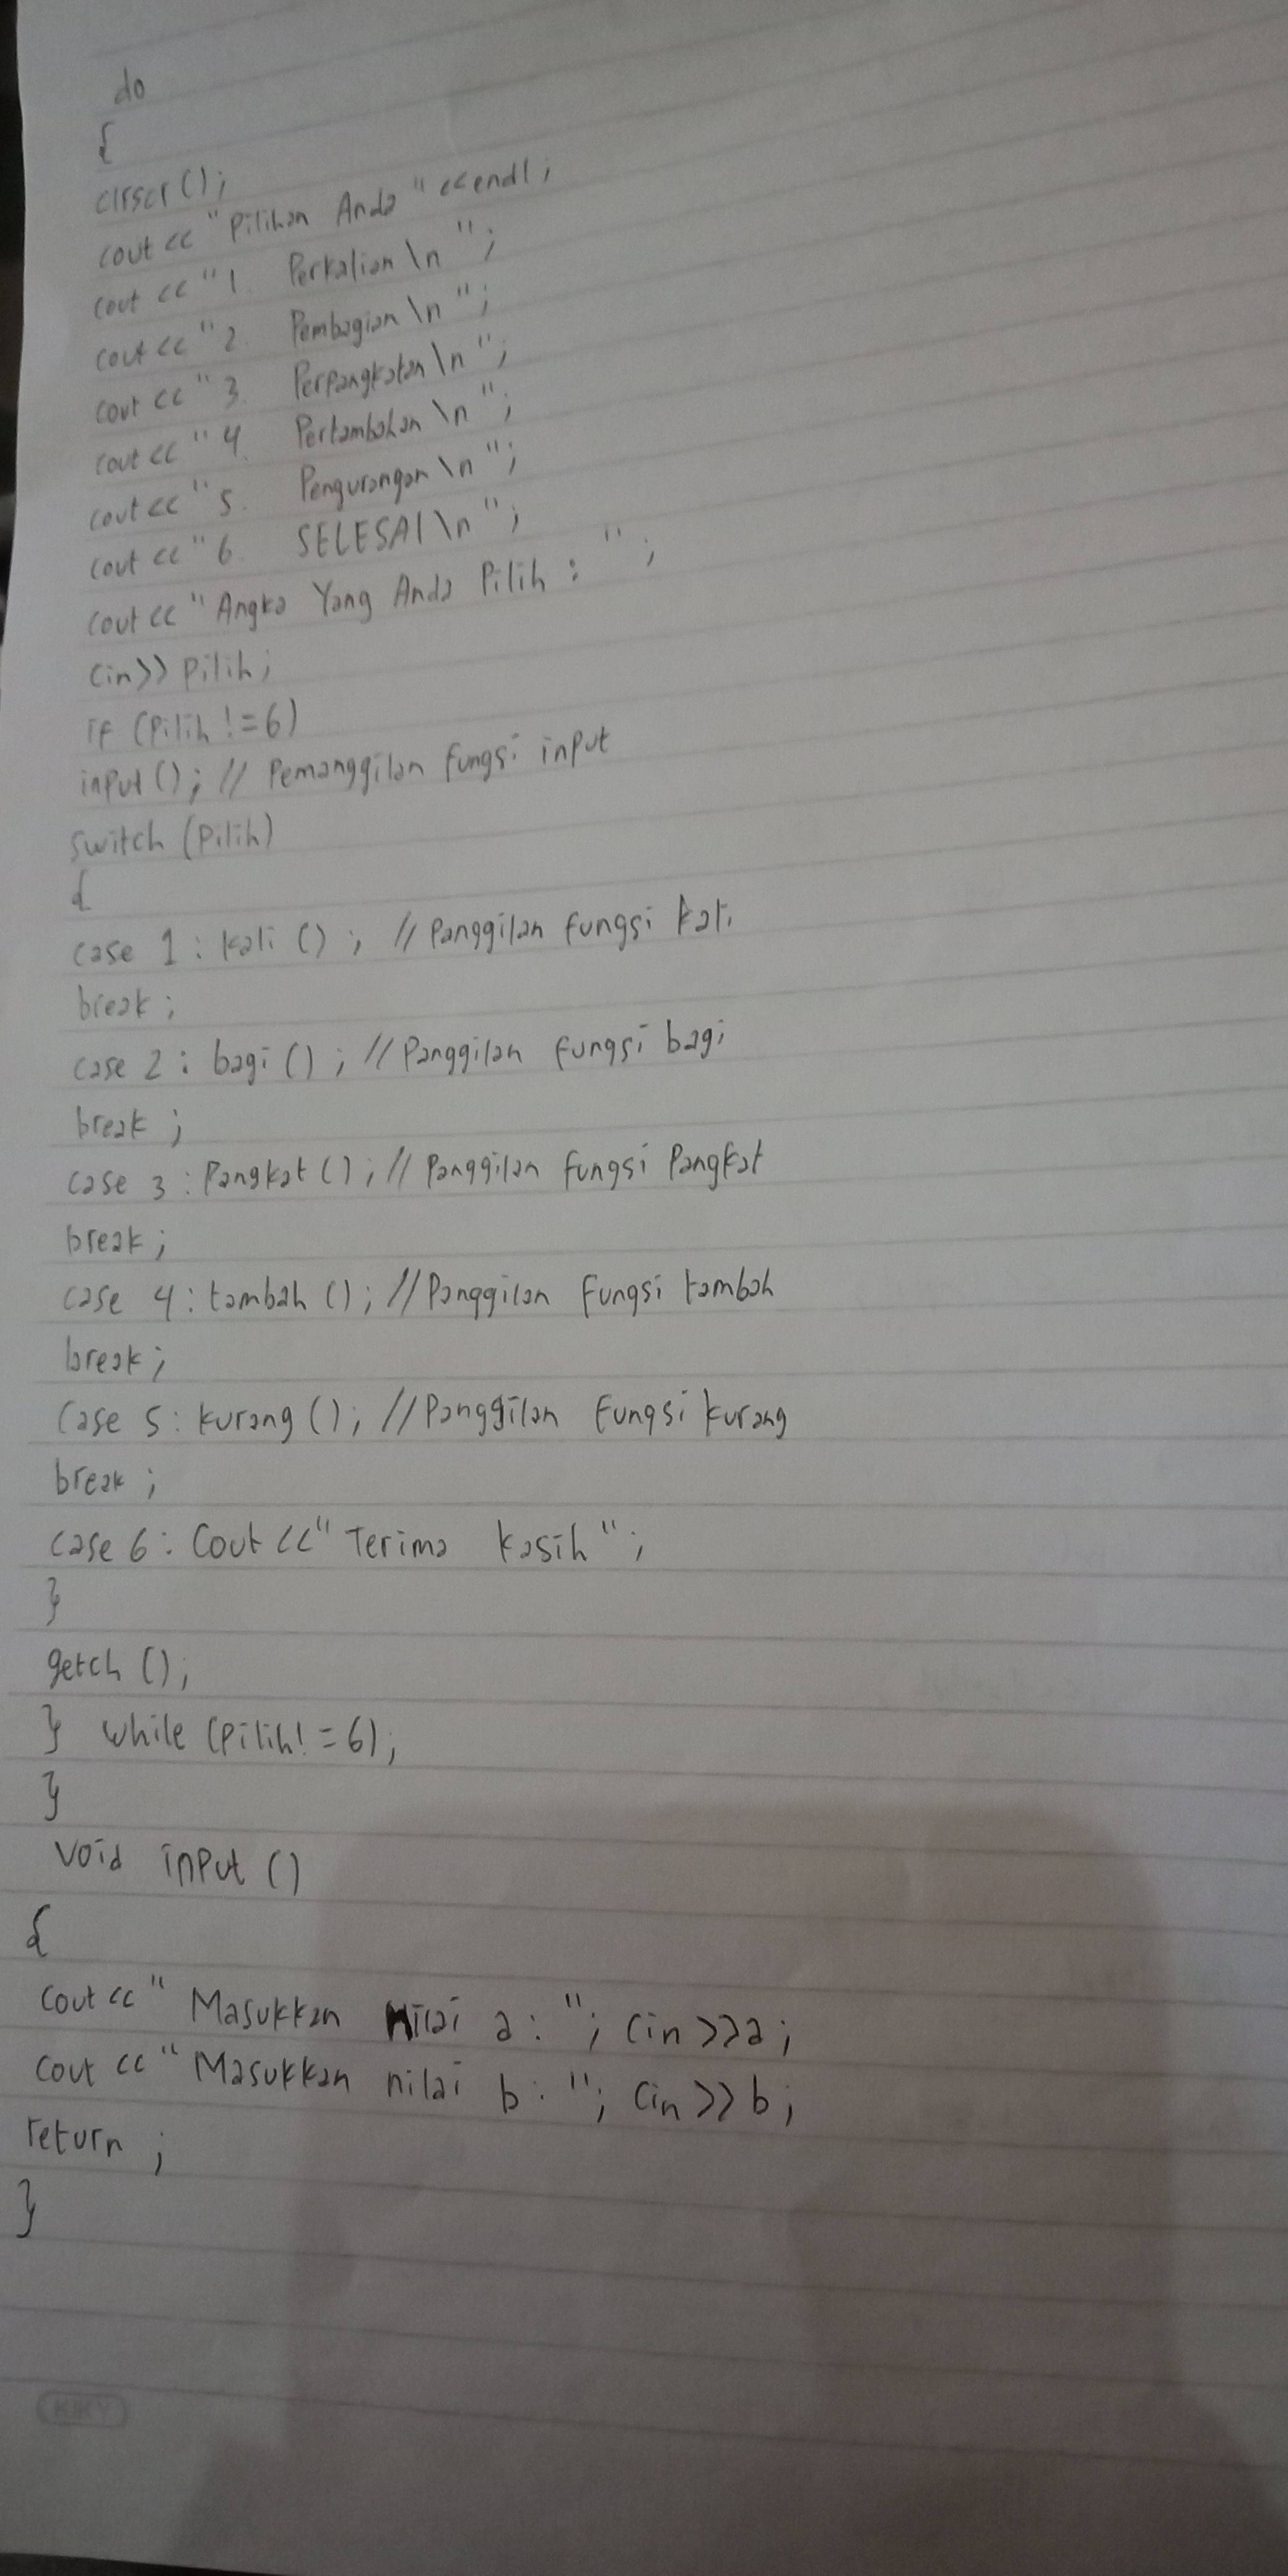 do
{
clrscr();
cout << "Pilihan Anda" <<endl;
cout << "1. Perkalian \n ";
cout << "2. Pembagian \n ";
cout << "3. Perpangkatan \n ";
cout << "4. Pertambahan \n ";
cout << "5. Pengurangan \n ";
cout << "6. SELESAI \n ";
cout << "Angka Yang Anda Pilih : " ;
Cin>> Pilih;
if (Pilih !=6)
input (); // Pemanggilan Fungsi input
Switch (Pilih)
{
case 1 : kali () ; // Panggilan fungsi kali
break ;
case 2 : bagi () ; // Panggilan fungsi bagi
break ;
case 3 : Pangkat () ; // Panggilan fungsi Pangkat
break ;
case 4 : tambah () ; //Panggilan Fungsi tambah
break ;
Case 5 : kurang () ; //Panggilan Fungsi kurang
break ;
case 6 : Cout <<" Terima kasih " ;
}
getch () ;
} while (Pilih! = 6) ;
}
void input ()
{
Cout << " Masukkan nilai a : " ; Cin >>a ;
Cout << " Masukkan nilai b : " ; Cin >> b ;
return ;
}
KIKY